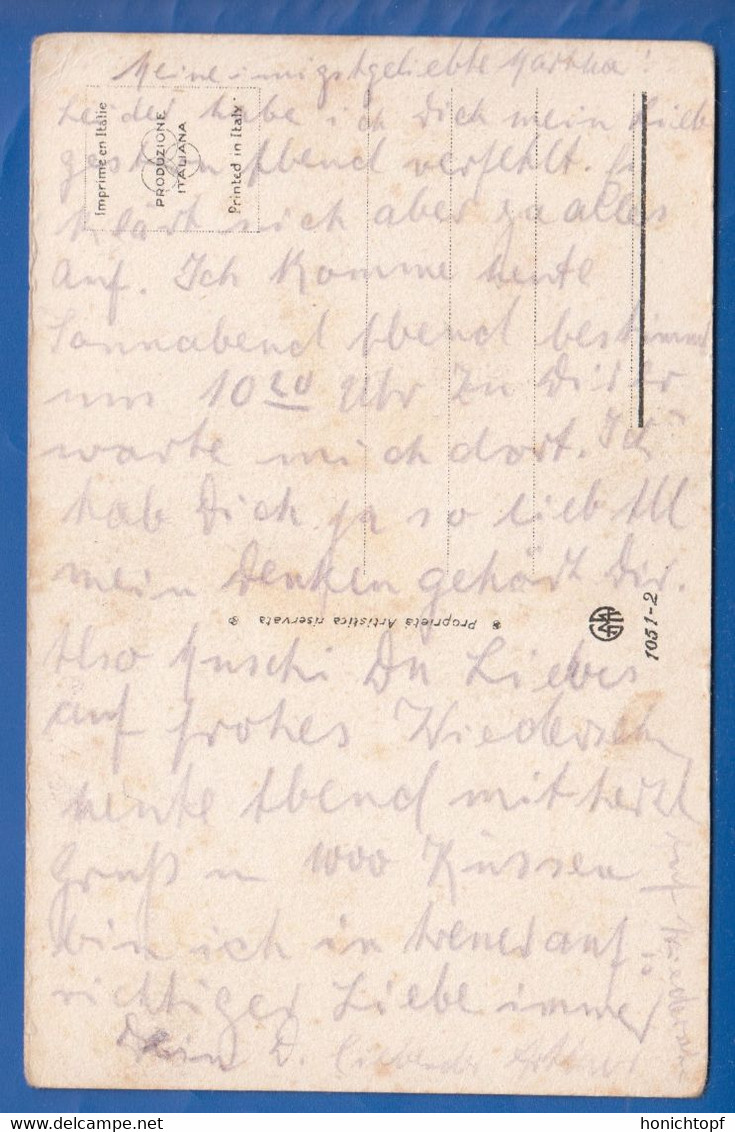 Meine innigstgeliebte Martha!
Leider habe ich Dich mein Lieb
gestern Abend verfehlt.
klärt sich aber ja alles
auf. Ich komme heute
Sonnabend Abend bestimmt
um 10 20 Uhr zu Dir er
warte mich dort. Ich
hab Dich ja so lieb All
mein Denken gehört Dir.
Also Muschi Du Liebes
auf frohes Wiedersehn
heute Abend mit herzl
Gruß u 1000 Küssen
bin ich in treuer auf
richtiger Liebe immer
Dein D. liebender
auf Wiedersehn
Imprimé en Italie
PRODUZIONE
ITALIANA
Printed in Italy
Proprietà Artistica riservata
1051-2
honichtopf